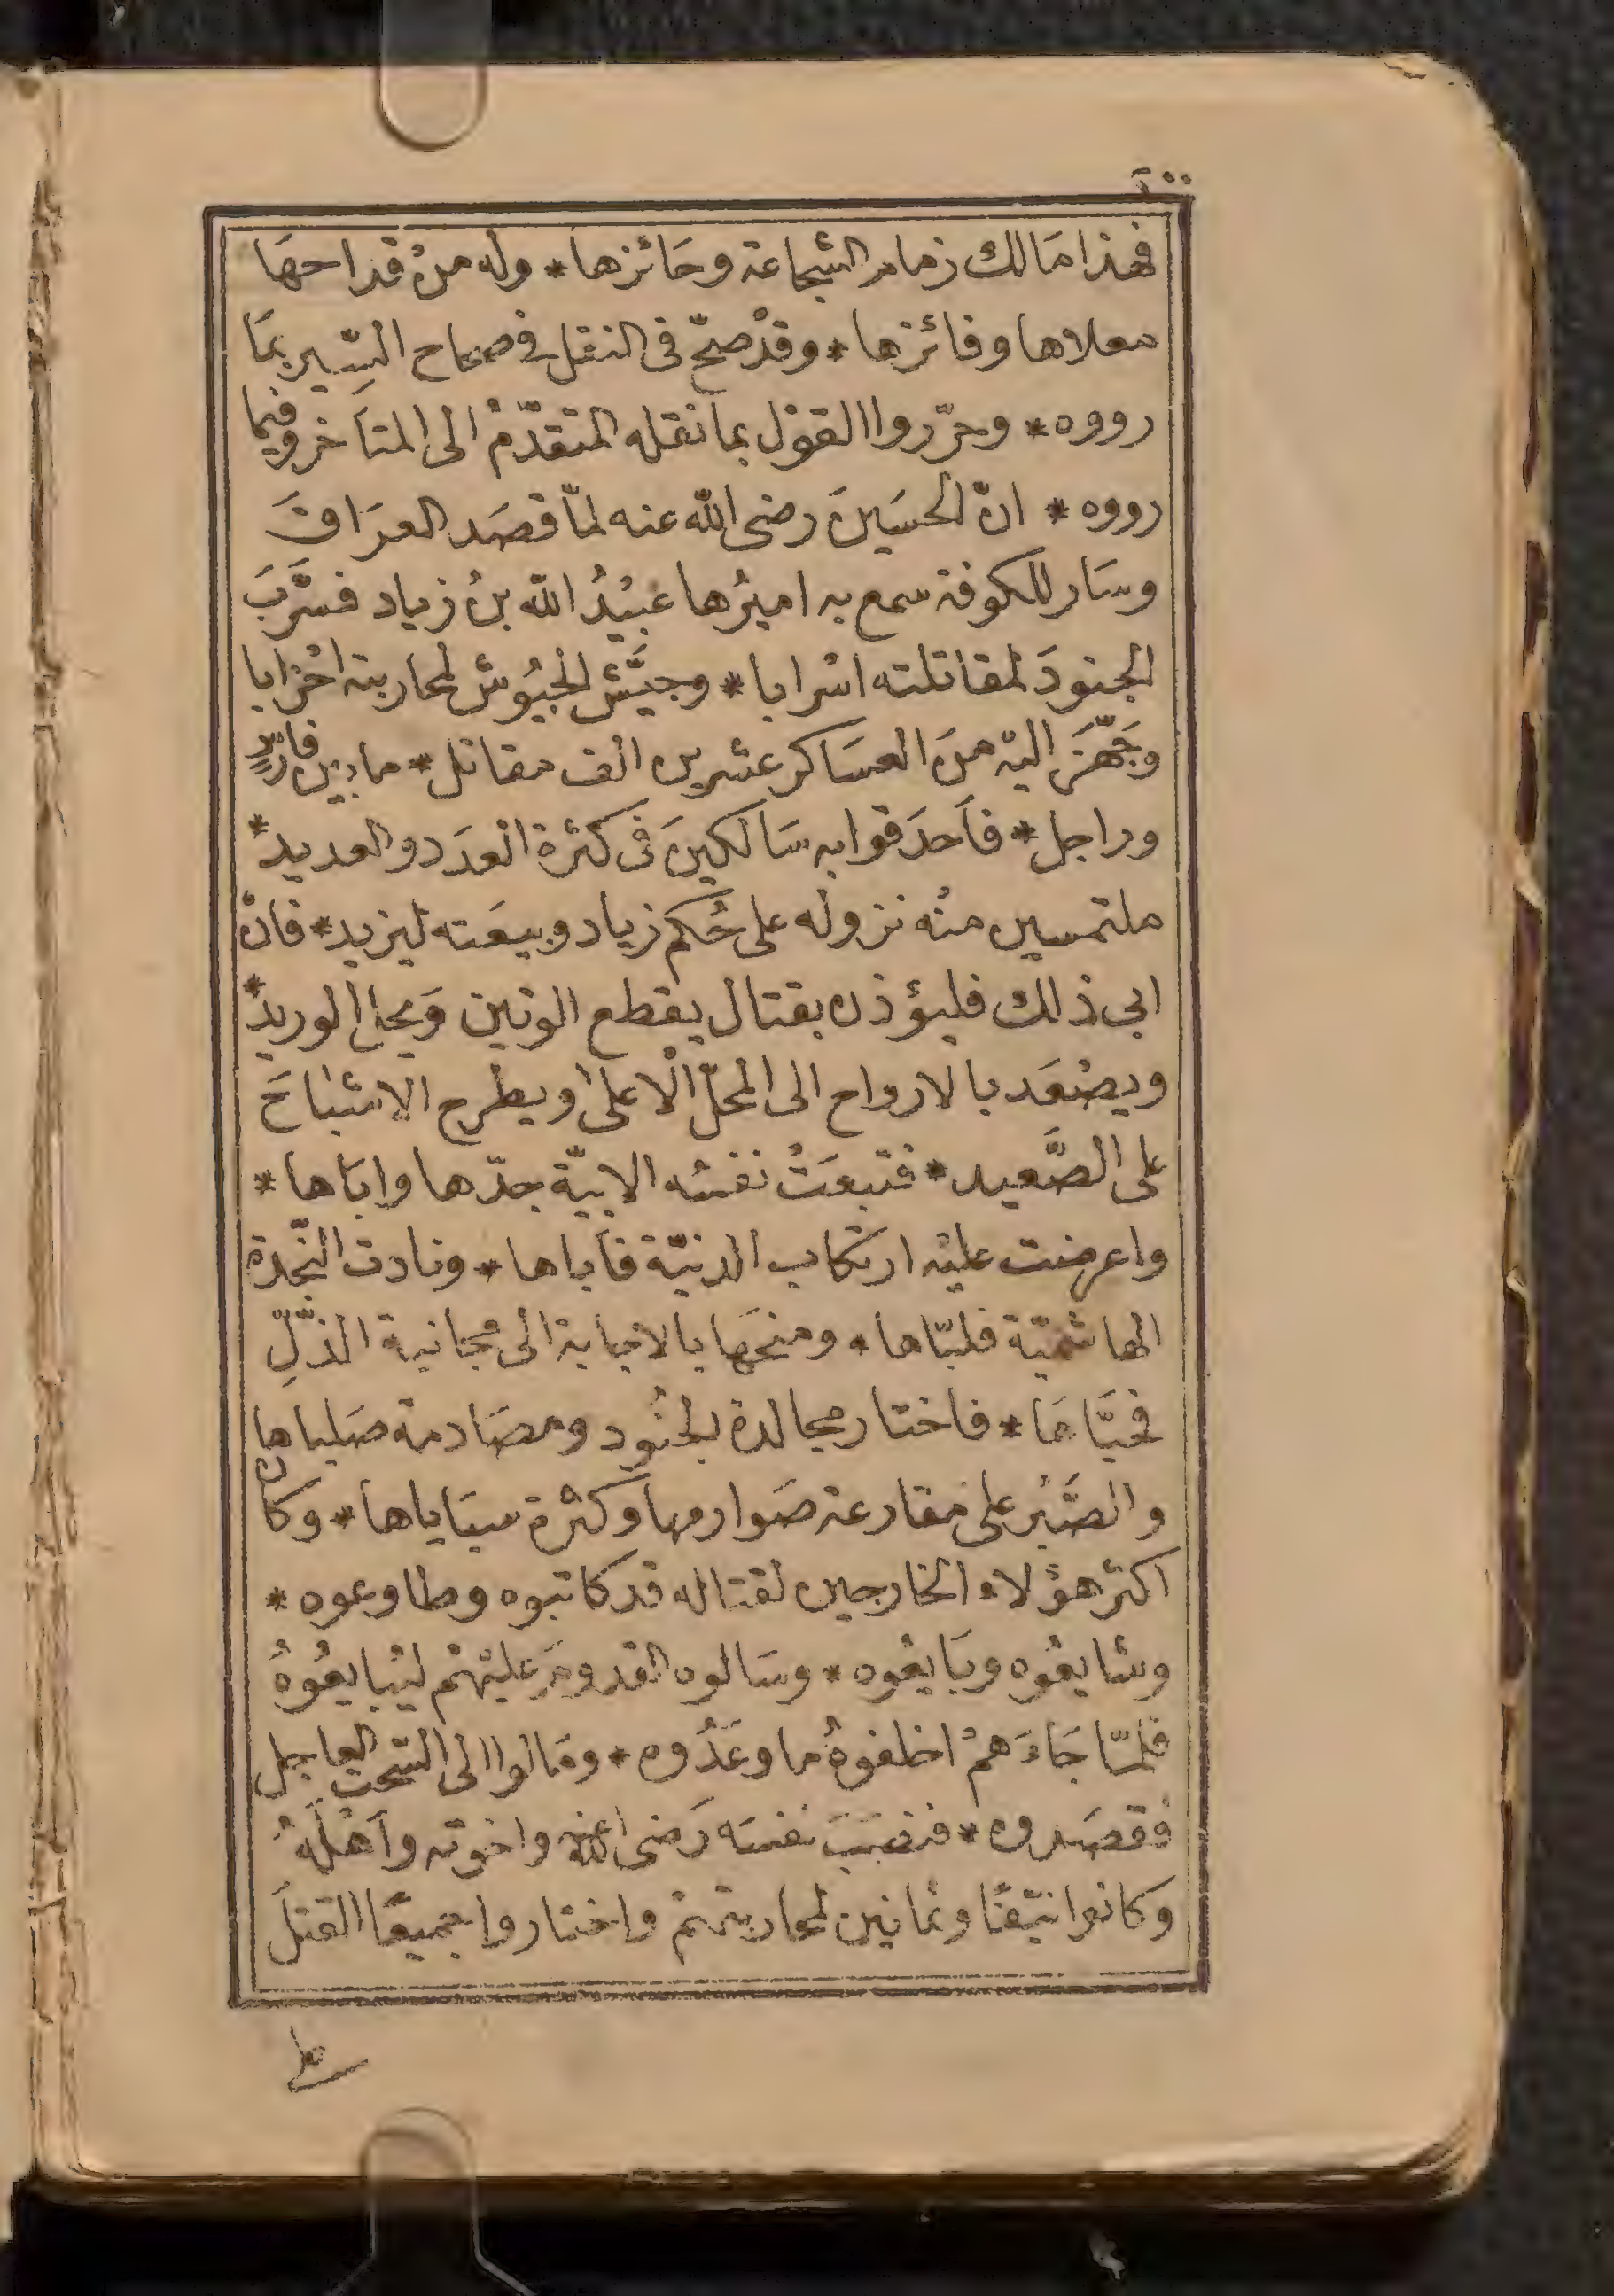 ٢٠٠
فهذا مَالك زمام الشجاعة وحَائزها * وله منْ قداحهَا
معلاها وفائزها * وقدْ صحّ فى النقل فى صحاح السِّير بمَا
رووه * وحرّروا القوْل بما نقله المتقدّمْ الى المتأخر وفيما
رووه * انّ الحسَينَ رضى الله عنه لمّا قصَد العرَاقَ
وسَار للكوفة سمع به اميرُها عبيْدُ الله بنُ زياد فسَرَّبَ
الجنودَ لمقاتلته اسْرابا * وجيَّش الجيُوش لمحاربته احْزابا
وجَهّزَ اليْه منَ العسَاكر عشرين الف مقاتل * ما بين فارسٍ
وراجل * فأحدَقوا به سَالكينَ فى كثرة العدَد والعديد *
ملتمسين منْه نزوله على حُكم زياد وبيعَته ليزيد * فانْ
ابى ذلك فليؤذن بقتال يقطع الوتين وَيحل الوريدَ *
ويصْعَد بالارواح الى المحلّ الْاعلى ويطرح الاشْباحَ
على الصَّعيد * فتبعَتْ نفسُه الابيّة جدّها واباها *
واعرضت عليْه ارتكاب الدنيّة فأباها * ونادت النّجدة
الهاشميّة فلبّاها * ومنحَها بالاجابة الى مجانبة الذّلِّ
فحيَّاهَا * فاختار مجالدة الجنُود ومصَادمة صَلباها
والصَّبْر على مقارعة صَوارمها وكثرة سبَاياها * وكان
اكثر هؤلاء الخارجين لقتاله قد كاتبوه وطاوعوه *
وشايعُوه وبَايعُوه * وسَالوه القدومَ عليْهمْ ليُبايعُوهُ
فلمّا جَاءَهمْ اخلفوهُ ما وعَدُوه * ومَالوا الى السّحت العاجل
فقصَدوه * فنصَبَ نفسَه رَضى الله عنه واخوته وأهْلهُ
وكانوا نيّفًا وثمانين لمحاربتهمْ واختاروا جميعًا القتلَ